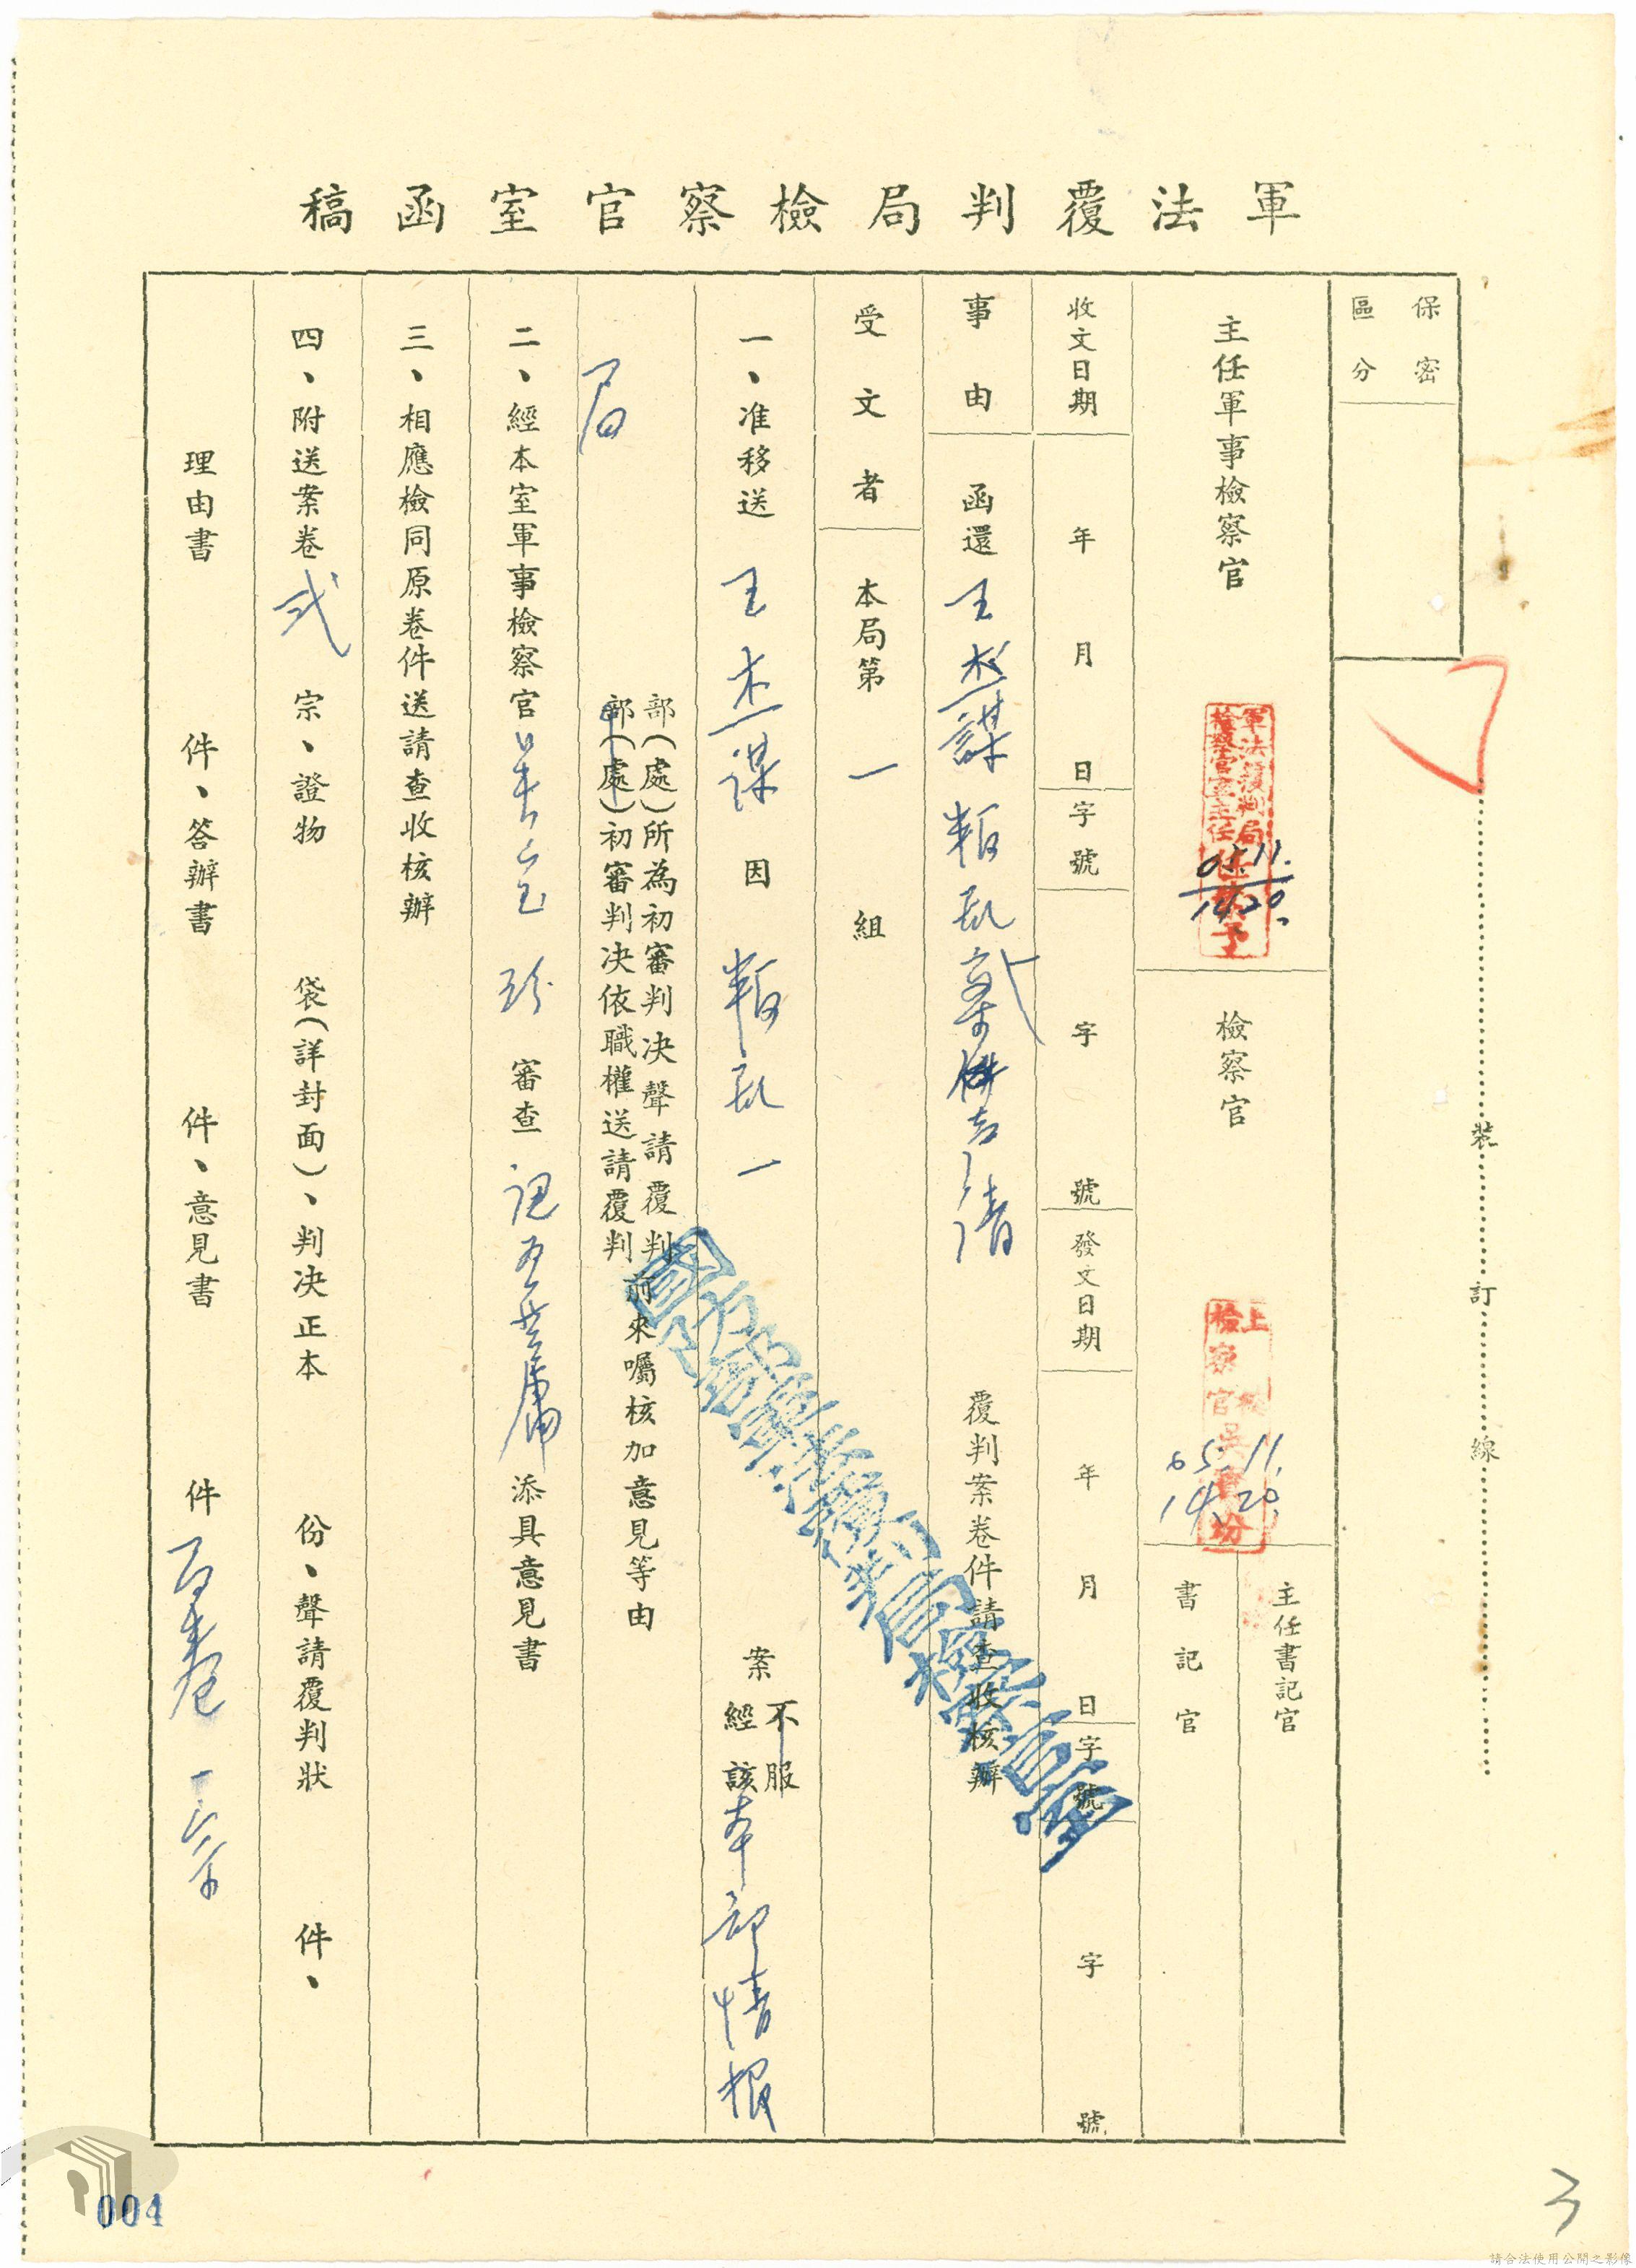 軍法覆判局檢察官室函稿
保密
區分
主任軍事檢察官
檢察官
主任書記官
書記官
軍法覆判局
檢察官室主任
65.11.
14.20.
65.11.
14.20.
收文日期
年月日
字號
字號
發文日期
年月日
字號
字號
事由
函還 叛亂 覆判案卷件請查收核辦
受文者
本局第一組
一、准移送 因叛亂一案
不服
經該本部情報
局
部(處)所為初審判決聲請覆判
部(處)初審判決依職權送請覆判
前來囑核加意見等由
二、經本室軍事檢察官吳 審查 添具意見書
三、相應檢同原卷件送請查收核辦
四、附送案卷弍宗、證物 袋(詳封面)、判決正本 份、聲請覆判狀 件、
理由書 件、答辯書 件、意見書 件 一宗
國防部軍法覆判局檢察官室
裝
訂
線
004
3
請合法使用公開之影像